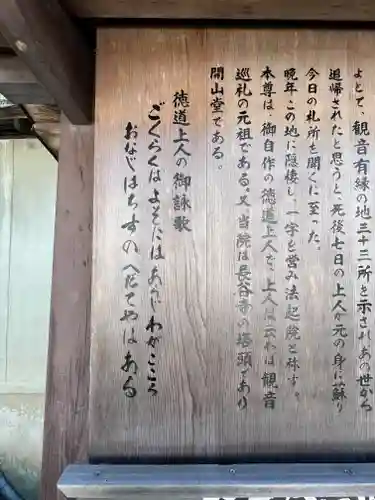 よとて、観音有縁の地三十三所を示されあの世から
追帰されたと思うと、死後七日の上人が元の身に蘇り
今日の札所を開くに至った。
晩年この地に隠棲し、一宇を営み法起院と称す。
本尊は、御自作の徳道上人で、上人は云わば観音
巡礼の元祖である。又、当院は長谷寺の塔頭であり
開山堂である。
徳道上人の御詠歌
ごくらくはよそにはあらじわがこころ
おなじはちすのへだてやはある